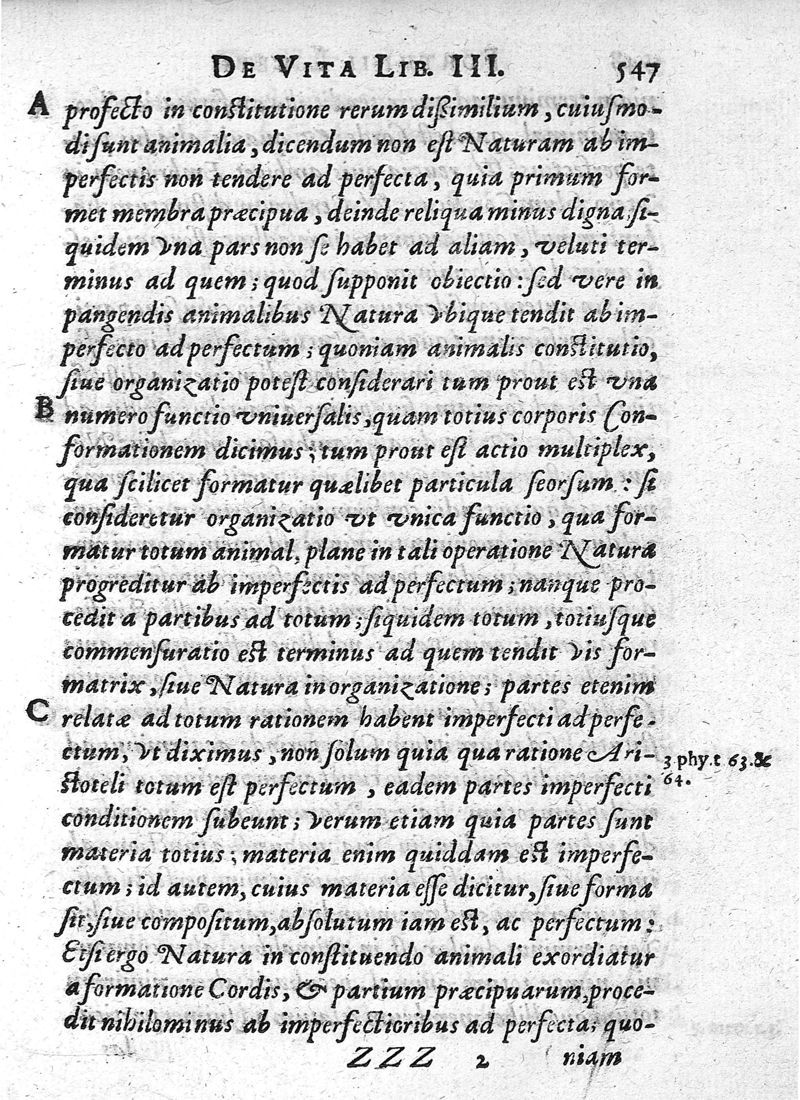 DE VITA LIB. III. 547
A profecto in constitutione rerum dißimilium, cuiusmo-
di sunt animalia, dicendum non est Naturam ab im-
perfectis non tendere ad perfecta, quia primum for-
met membra præcipua, deinde reliqua minus digna; si-
quidem vna pars non se habet ad aliam, veluti ter-
minus ad quem; quod supponit obiectio: sed vere in
pangendis animalibus Natura vbique tendit ab im-
perfecto ad perfectum; quoniam animalis constitutio,
siue organizatio potest considerari tum prout est vna
B numero functio vniuersalis, quam totius corporis Con-
formationem dicimus; tum prout est actio multiplex,
qua scilicet formatur quælibet particula seorsum: si
consideretur organizatio vt vnica functio, qua for-
matur totum animal, plane in tali operatione Natura
progreditur ab imperfectis ad perfectum; nanque pro-
cedit a partibus ad totum; siquidem totum, totiusque
commensuratio est terminus ad quem tendit vis for-
matrix, siue Natura in organizatione; partes etenim
C relatæ ad totum rationem habent imperfecti ad perfe-
ctum, vt diximus, non solum quia qua ratione Ari-
stoteli totum est perfectum, eadem partes imperfecti
conditionem subeunt; verum etiam quia partes sunt
materia totius; materia enim quiddam est imperfe-
ctum; id autem, cuius materia esse dicitur, siue forma
sit, siue compositum, absolutum iam est, ac perfectum:
Etsi ergo Natura in constituendo animali exordiatur
a formatione Cordis, & partium præcipuarum, proce-
dit nihilominus ab imperfectioribus ad perfecta; quo-
ZZZ 2 niam
3 phy.t 63.&
64.